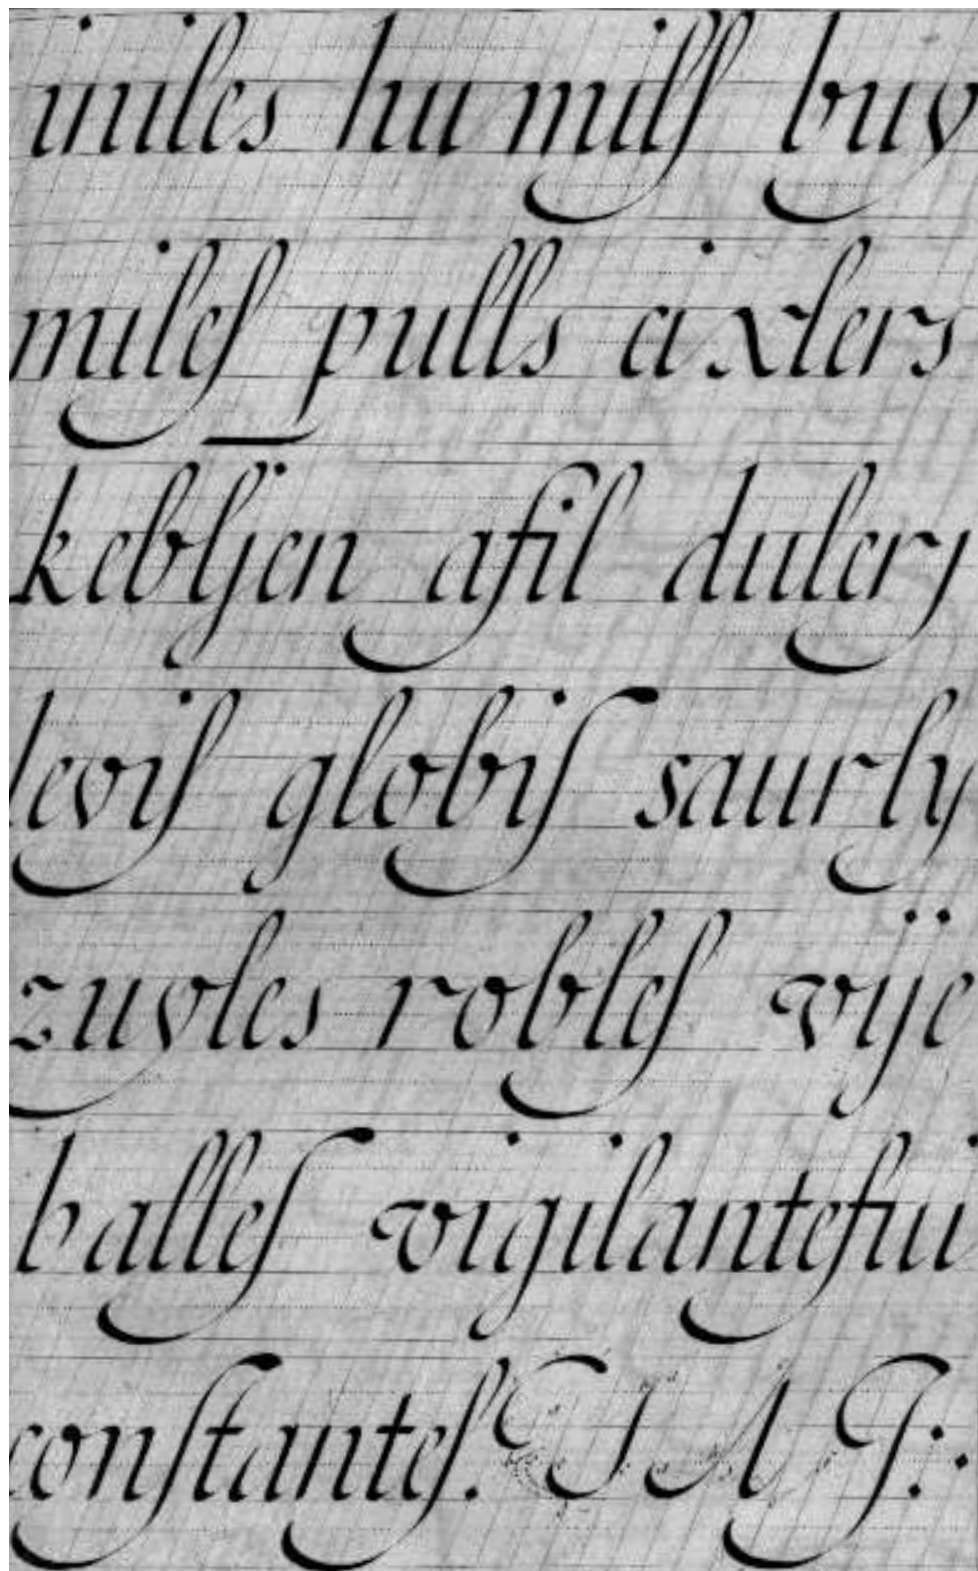 iniles humilſ buv
mileſ pulls aixlers
keblſjen afil dulerj
leviſ globiſ saurly
zuvles robleſ vije
balleſ vigilanteſtui
conſtanteſ.